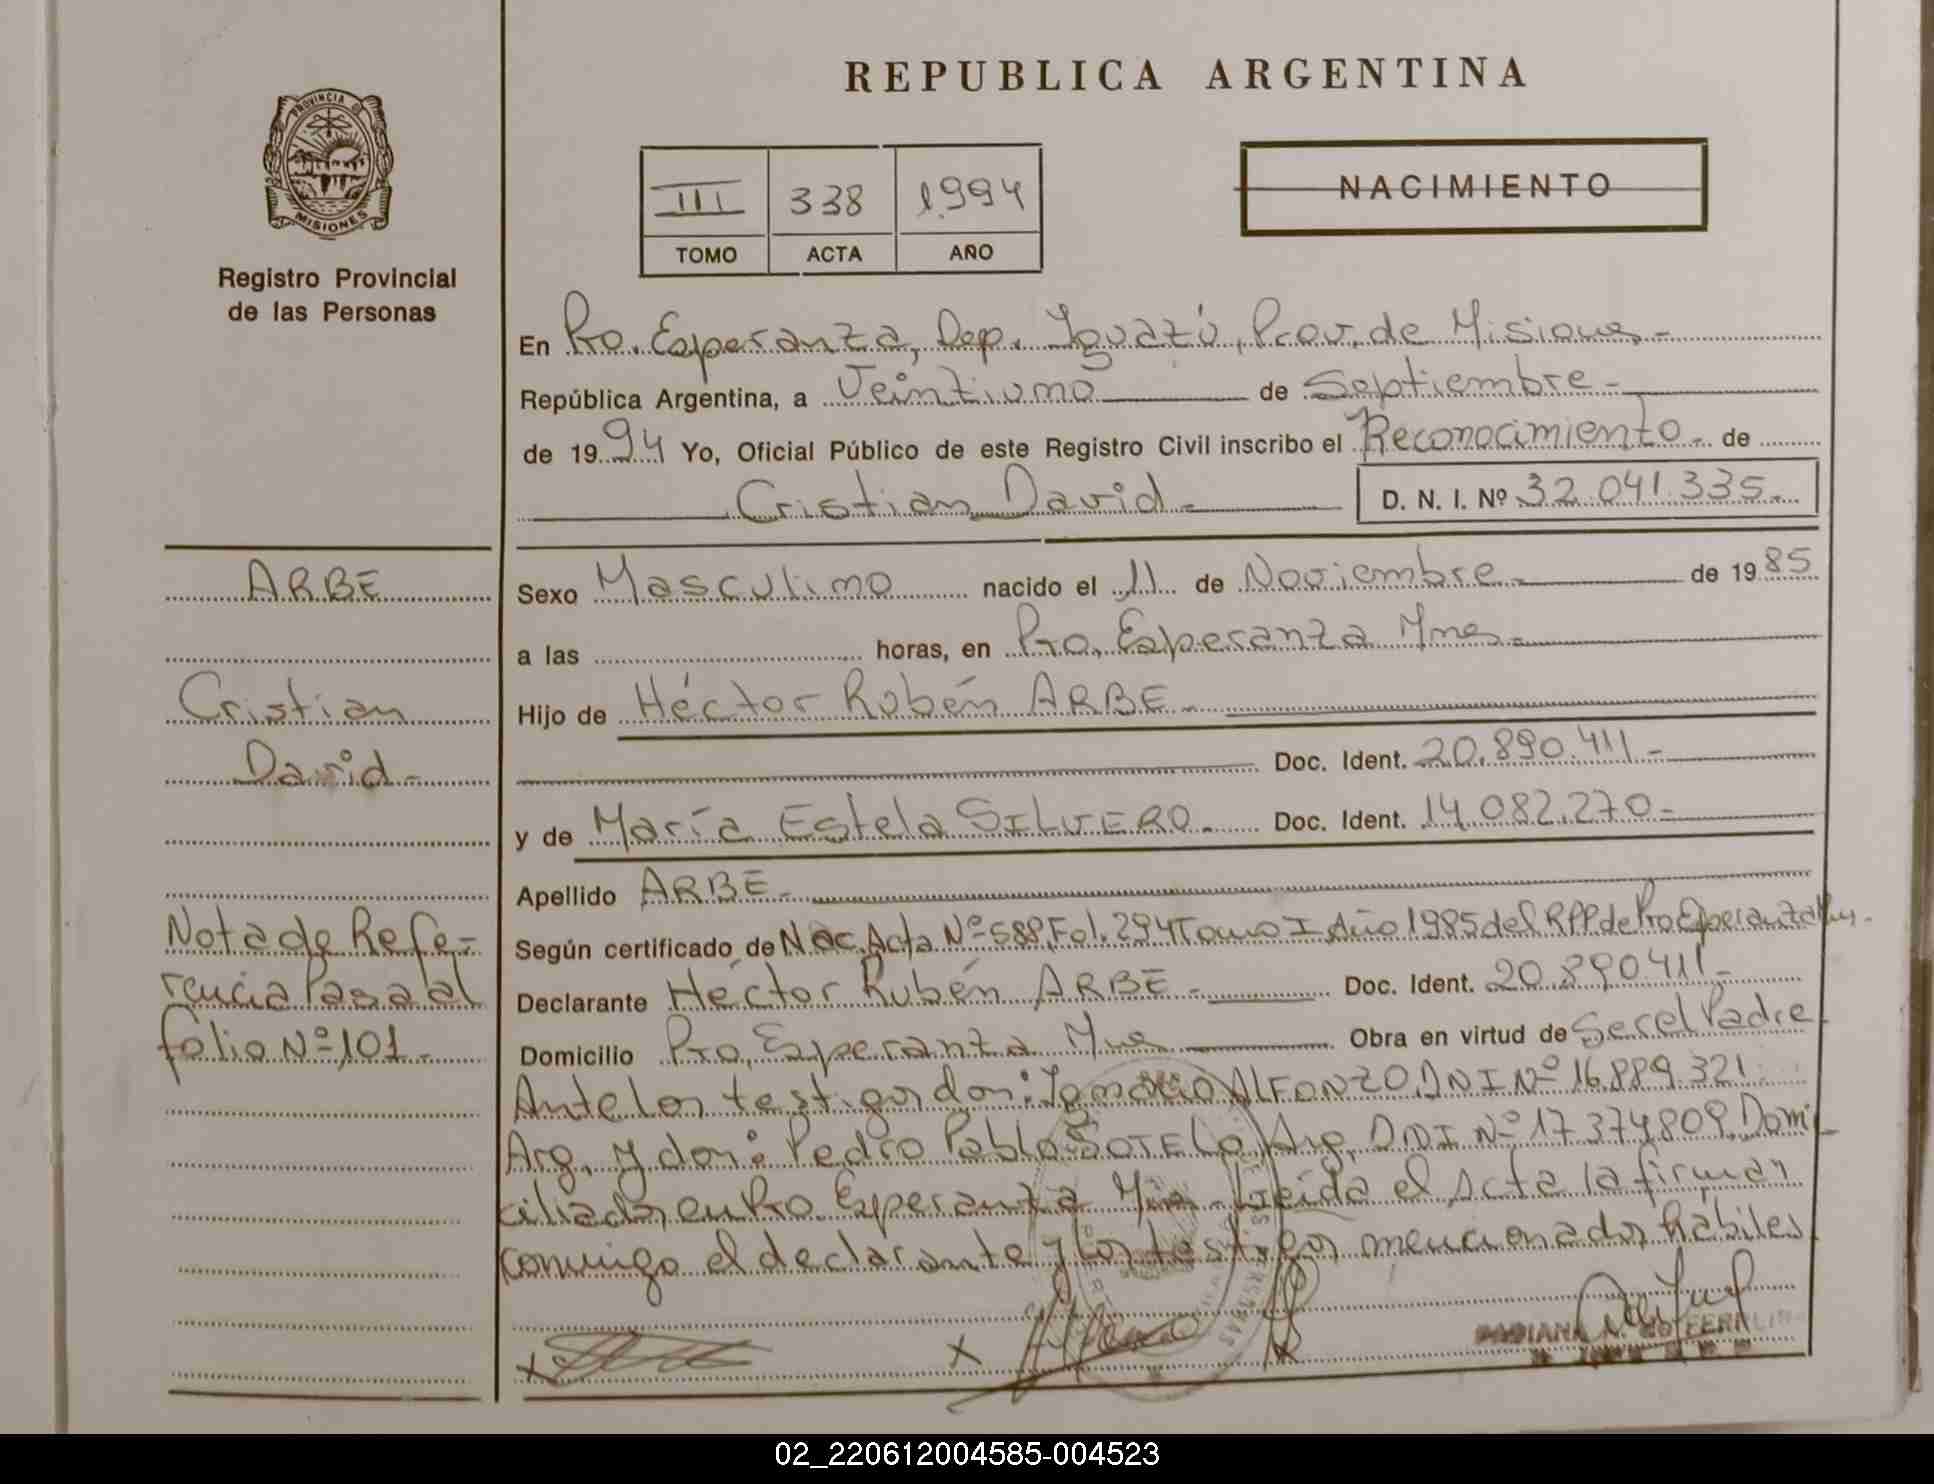 REPUBLICA ARGENTINA
PROVINCIA DE
MISIONES
Registro Provincial
de las Personas
III 338 1.994
TOMO ACTA AÑO
NACIMIENTO
En Pto. Esperanza, Dep. Iguazú, Prov. de Misiones.-
República Argentina, a Veintiuno de Septiembre.-
de 1994 Yo, Oficial Público de este Registro Civil inscribo el Reconocimiento. de
Cristian David.- D. N. I. Nº 32.041.335.-
ARBE
Cristian
David.-
Nota de Refe-
rencia Pasa al
folio Nº 101.-
Sexo Masculino nacido el 11 de Noviembre.- de 1985
a las horas, en Pto. Esperanza Mnes.-
Hijo de Héctor Rubén ARBE.-
Doc. Ident. 20.890.411.-
y de María Estela SILVERO.- Doc. Ident. 14.082.270.-
Apellido ARBE.-
Según certificado de Nac. Acta Nº 588, Fol. 294 Tomo I Año 1985 del RPP. de Pto Esperanza
Declarante Héctor Rubén ARBE.- Doc. Ident. 20.890411.-
Domicilio Pto. Esperanza Mnes Obra en virtud de Ser el Padre
Ante los testigos don: Ignacio ALFONZO DNI Nº 16.889.321
Arg. y don: Pedro Pablo SOTELO, Arg. DNI Nº 17.374.809. Domi-
ciliados en Pto Esperanza Mnes. Leída el Acta la firman
conmigo el declarante y los testigos mencionados habiles
02_220612004585-004523